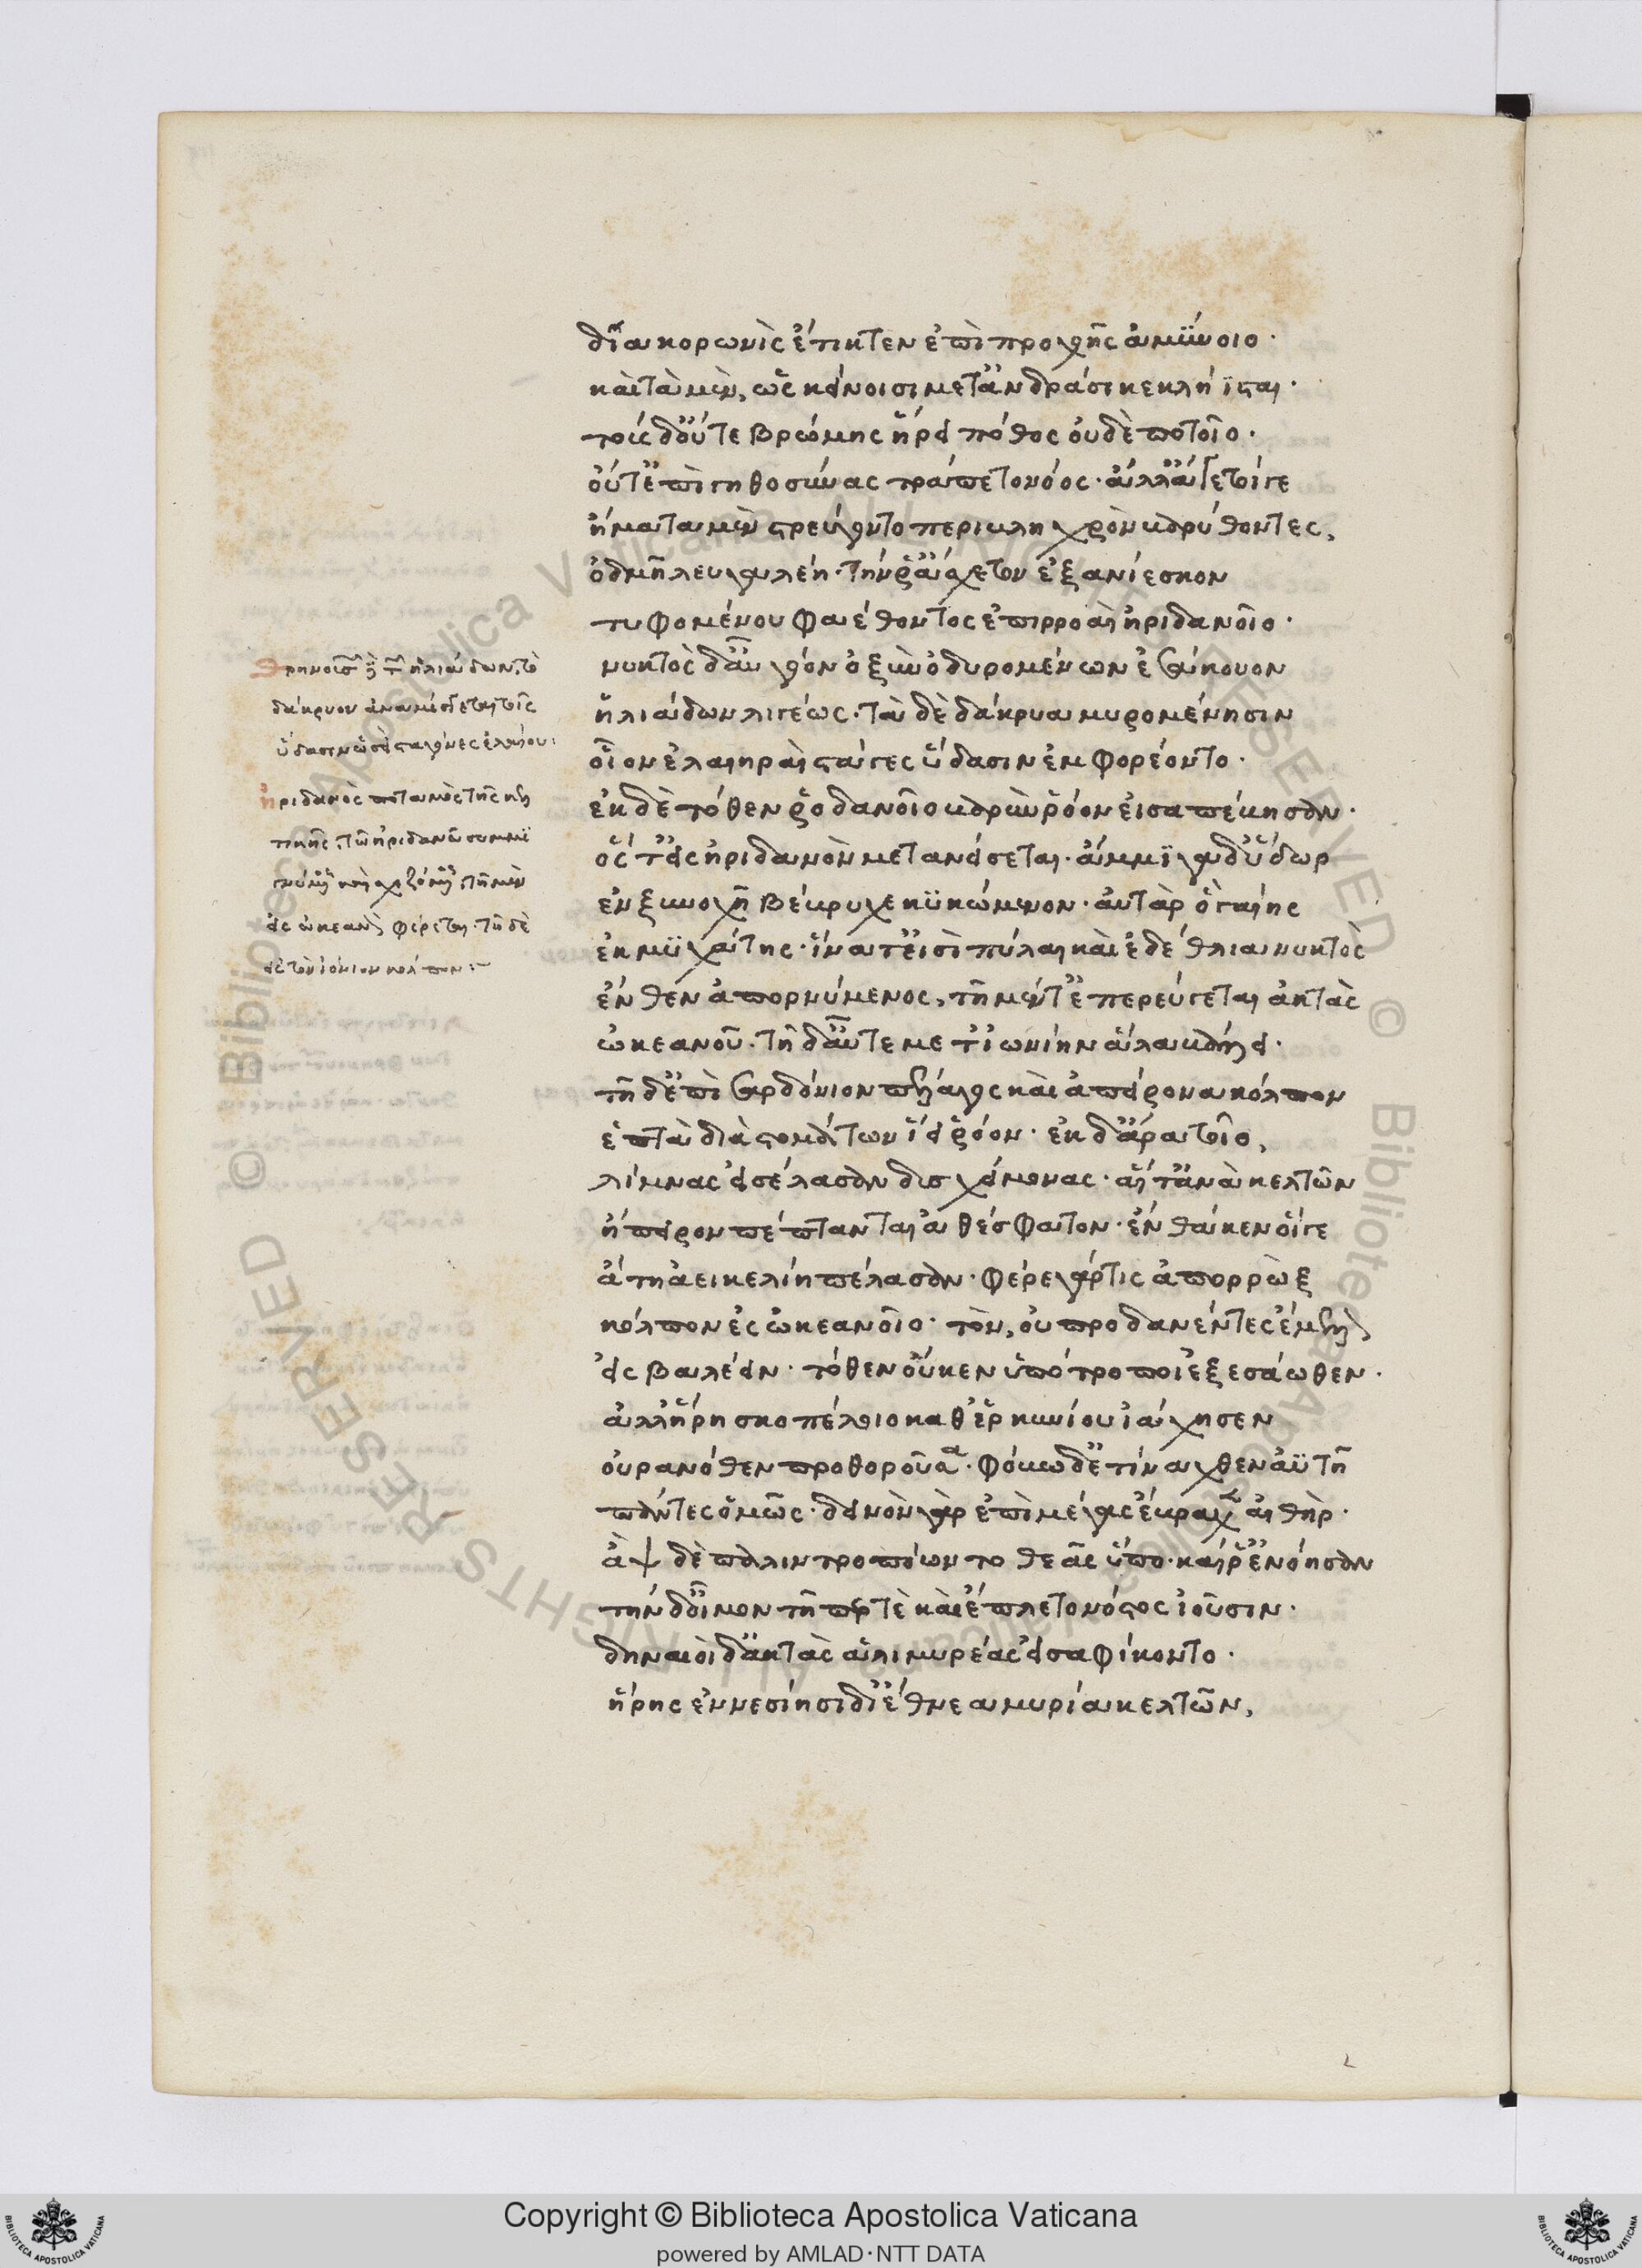 δῖα κορωνὶς ἔτικτεν ἐπὶ προχοῆς ἀμύνοιο·
καὶ τὰ μὲν, ὣς κείνοισι μετ' ἀνδράσι κεκλήϊσται·
τοὺς δ' οὔτε βρώμης ᾕρει πόθος οὐδὲ ποτοῖο·
οὔτ' ἐπὶ γηθοσύνας τράπετο νόος· ἀλλ' ἄρα τοίγε
ἤματα μὲν στρεύγοντο περιβληχρὸν βαρύθοντες,
ὀδμῇ λευγαλέῃ· τήν ῥ' ἄσχετον ἐξανίεσκον
τυφομένου φαέθοντος ἐπιρροαὶ ἠριδανοῖο·
νυκτὸς δ' αὖ γόον ὀξὺν ὀδυρομένων ἐσάκουον
ἡλιάδων λιγέως· τὰ δὲ δάκρυα μυρομένησιν
οἷον ἐλαιηραὶ στάγες ὕδασιν ἐμφορέοντο·
ἐκ δὲ τόθεν ῥοδανοῖο βαθὺν ῥόον εἰσαπέβησαν·
ὅς τ' εἰς ἠριδανὸν μετανείσεται· ἄμμιγα δ' ὕδωρ
ἐν ξυνοχῇ βέβρυχε κϋκώμενον· αὐτὰρ ὁ γαίης
ἐκ μϋχάτης· ἵνα τ' εἰσὶ πύλαι καὶ ἐδέθλια νυκτὸς
ἔνθεν ἀπορνύμενος, τῇ μέν τ' ἐπερεύγεται ἀκτὰς
ὠκεανοῦ· τῇ δ' αὖτε μετ' ἰωνίην ἅλα βάλλει·
τῇ δ' ἐπὶ σαρδόνιον πέλαγος καὶ ἀπείρονα κόλπον
ἑπτὰ διὰ στομάτων ἵει ῥόον· ἐκ δ' ἄρα τοῖο,
λίμνας εἰσέλασαν δυσχείμονας· αἵτ' ἀνὰ κελτῶν
ἤπειρον πέπτανται ἀθέσφατον· ἔνθα κεν οἵγε
ἄτῃ ἀεικελίῃ πέλασαν· φέρε γάρ τις ἀπορρὼξ
κόλπον ἐς ὠκεανοῖο· τὸν, οὐ προδαέντες ἔμελλον
εἰσβαλέειν· τόθεν οὔ κεν ὑπότροποι ἐξεσάωθεν·
ἀλλ' ἥρη σκοπέλοιο καθ' ἑρκυνίου ἰάχησεν
οὐρανόθεν προθοροῦσα· φόβῳ δ' ἐτίναχθεν ἀϋτῇ
πάντες ὁμῶς· δεινὸν γὰρ ἐπὶ μέγας ἔβραχεν αἰθήρ·
ἂψ δὲ παλιντροπόωντο θεᾶς ὕπο· καί ῥ' ἐνόησαν
τὴν δ' οἶμον τῇ πέρ τε καὶ ἔπλετο νόστος ἰοῦσιν·
δηναιοὶ δ' ἀκτὰς ἁλιμυρέας εἰσαφίκοντο·
ἥρης ἐννεσίῃσι δι' ἔθνεα μυρία κελτῶν,
θρηνουσῶν δὲ τῶν ἡλιάδων, τὸ
δάκρυον ἀναμίσγεται τοῖς
ὕδασιν ὡσεὶ σταγόνες ἐλαίου:
ἠριδανὸς ποταμὸς τῆς κελ
τικῆς, τῷ ἠριδανῷ συμμι
γνύμενος καὶ σχιζόμενος, τῇ μὲν
εἰς ὠκεανὸν φέρεται· τῇ δὲ
εἰς τὸν ἰόνιον κόλπον:~
Copyright © Biblioteca Apostolica Vaticana
powered by AMLAD·NTT DATA